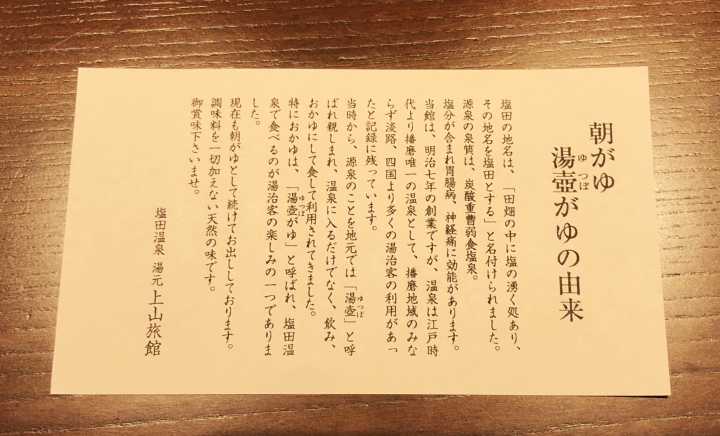 朝がゆ
湯壺がゆの由来
ゆつぼ
塩田の地名は、「田畑の中に塩の湧く処あり、
その地名を塩田とする」と名付けられました。
源泉の泉質は、炭酸重曹弱食塩泉。
塩分が含まれ胃腸病、神経痛に効能があります。
当館は、明治七年の創業ですが、温泉は江戸時
代より播磨唯一の温泉として、播磨地域のみな
らず淡路、四国より多くの湯治客の利用があっ
たと記録に残っています。
当時から、源泉のことを地元では「湯壺」と呼
ゆつぼ
ばれ親しまれ、温泉に入るだけでなく、飲み、
おかゆにして食して利用されてきました。
特におかゆは、「湯壺がゆ」と呼ばれ、塩田温
ゆつぼ
泉で食べるのが湯治客の楽しみの一つでありま
した。
現在も朝がゆとして続けてお出ししております。
調味料を一切加えない天然の味です。
御賞味下さいませ。
塩田温泉 湯元 上山旅館